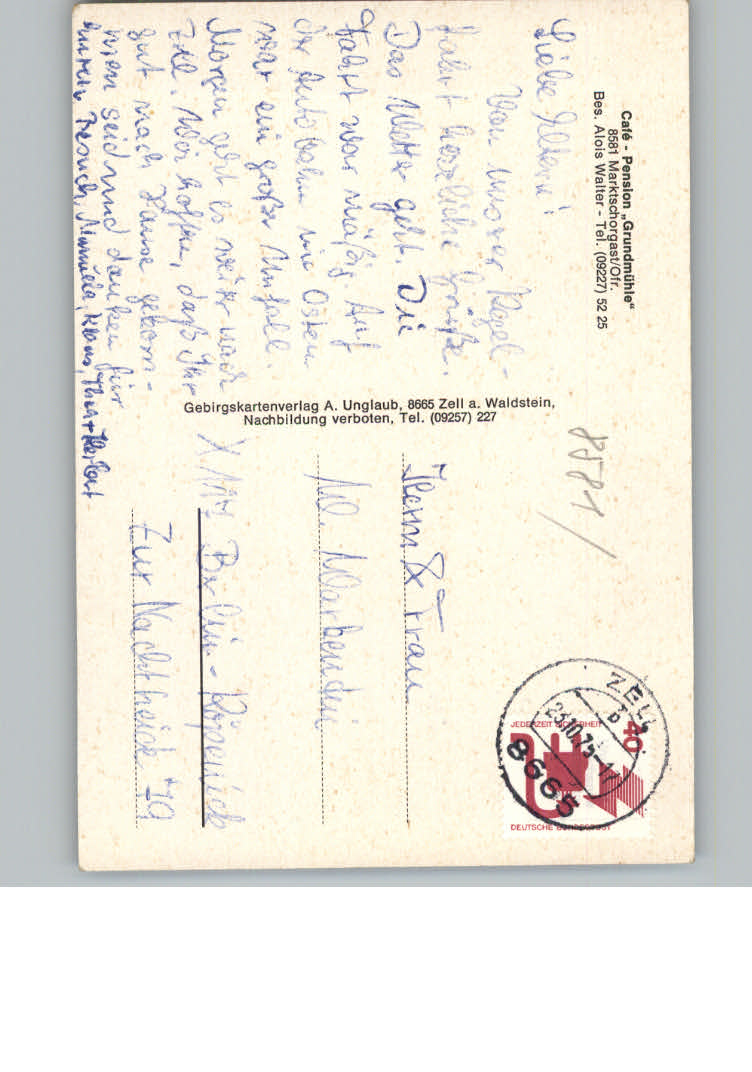 Café - Pension „Grundmühle“
8581 Marktschorgast/Ofr.
Bes. Alois Walter - Tel. (09227) 52 25
Liebe Eltern!
Von unserer Kegel-
fahrt herzliche Grüße.
Das Wetter geht. Die
Fahrt war mäßig. Auf
der Autobahn wie Ostern
war ein großer Unfall.
Morgen geht es weiter nach
Zell. Wir hoffen, daß Ihr
gut nach Hause gekom-
men seid und danken für
Euren Besuch, Manuela, Klaus, Thea + Herbert
Gebirgskartenverlag A. Unglaub, 8665 Zell a. Waldstein,
Nachbildung verboten, Tel. (09257) 227
8581/
Herrn & Frau
W.
X 117 Berlin - Köpenick
Zur Nachtheide 79
ZELL
b
23.10.75-17
8665
JEDERZEIT SICHERHEIT
40
DEUTSCHE BUNDESPOST